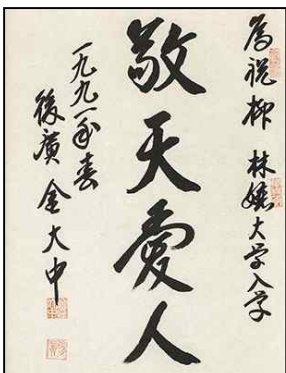 為祝柳林嬑大学入学
敬天愛人
一九九一年春
後廣金大中